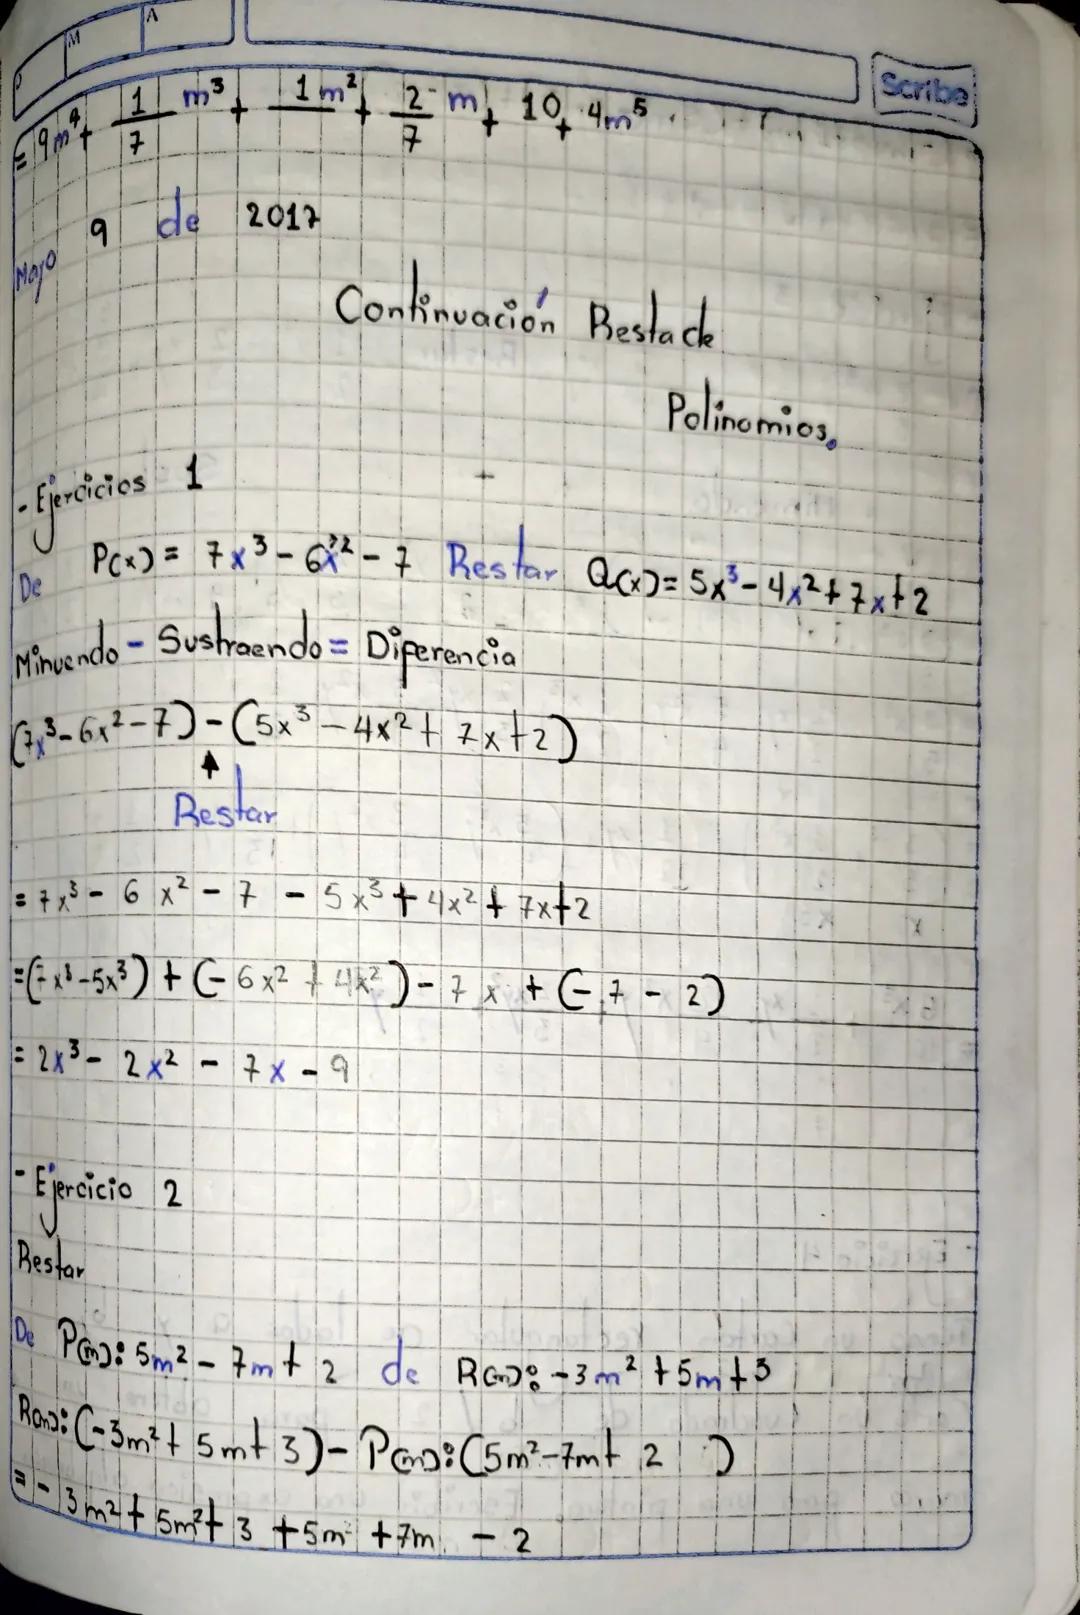 M A
Scribe
= 9m⁴ + 1/7 m³ + 1m² + 2/7 m + 10 + 4m⁵
Mayo 9 de 2017
Continuación Resta de
Polinomios.
- Ejercicios 1
De P(x) = 7x³ - 6x² - 7 Restar Q(x) = 5x³ - 4x² + 7x + 2
Minuendo - Sustraendo = Diferencia
(7x³ - 6x² - 7) - (5x³ - 4x² + 7x + 2)
↑
Restar
= 7x³ - 6x² - 7 - 5x³ + 4x² + 7x + 2
= (7x³ - 5x³) + (- 6x² + 4x²) - 7x + (- 7 - 2)
= 2x³ - 2x² - 7x - 9
- Ejercicio 2
Restar
De P(m): 5m² - 7m + 2 de R(m): -3m² + 5m + 3
R(m): (-3m² + 5m + 3) - P(m): (5m² - 7m + 2)
= - 3m² + 5m² + 3 + 5m + 7m - 2